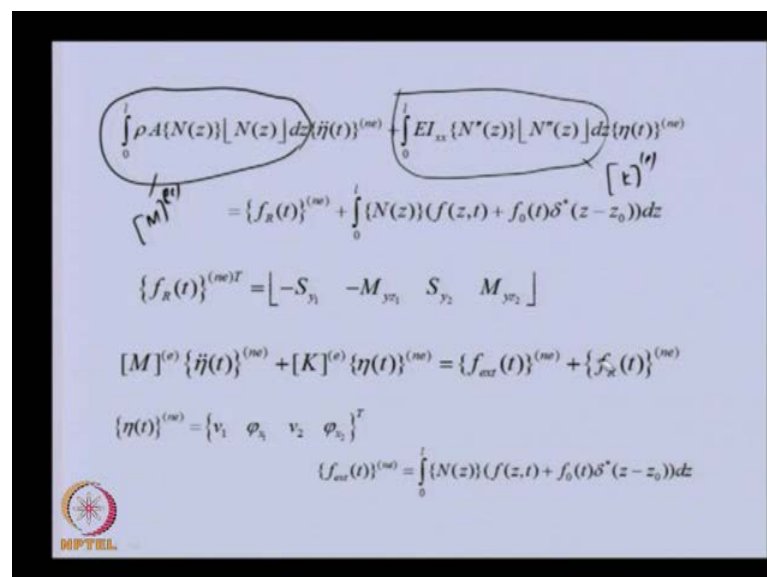 ∫₀ˡ ρA{N(z)}⌊N(z)⌋dz{η̈(t)}^(ne) + ∫₀ˡ EI_xx{N″(z)}⌊N″(z)⌋dz{η(t)}^(ne)
[M]^(e) [K]^(e)
= {f_R(t)}^(ne) + ∫₀ˡ {N(z)}(f(z,t) + f₀(t)δ*(z − z₀))dz
{f_R(t)}^(ne)T = ⌊−S_y₁ −M_yz₁ S_y₂ M_yz₂⌋
[M]^(e){η̈(t)}^(ne) + [K]^(e){η(t)}^(ne) = {f_ext(t)}^(ne) + {f_R(t)}^(ne)
{η(t)}^(ne) = {v₁ φ_x₁ v₂ φ_x₂}^T
{f_ext(t)}^(ne) = ∫₀ˡ {N(z)}(f(z,t) + f₀(t)δ*(z − z₀))dz
NPTEL